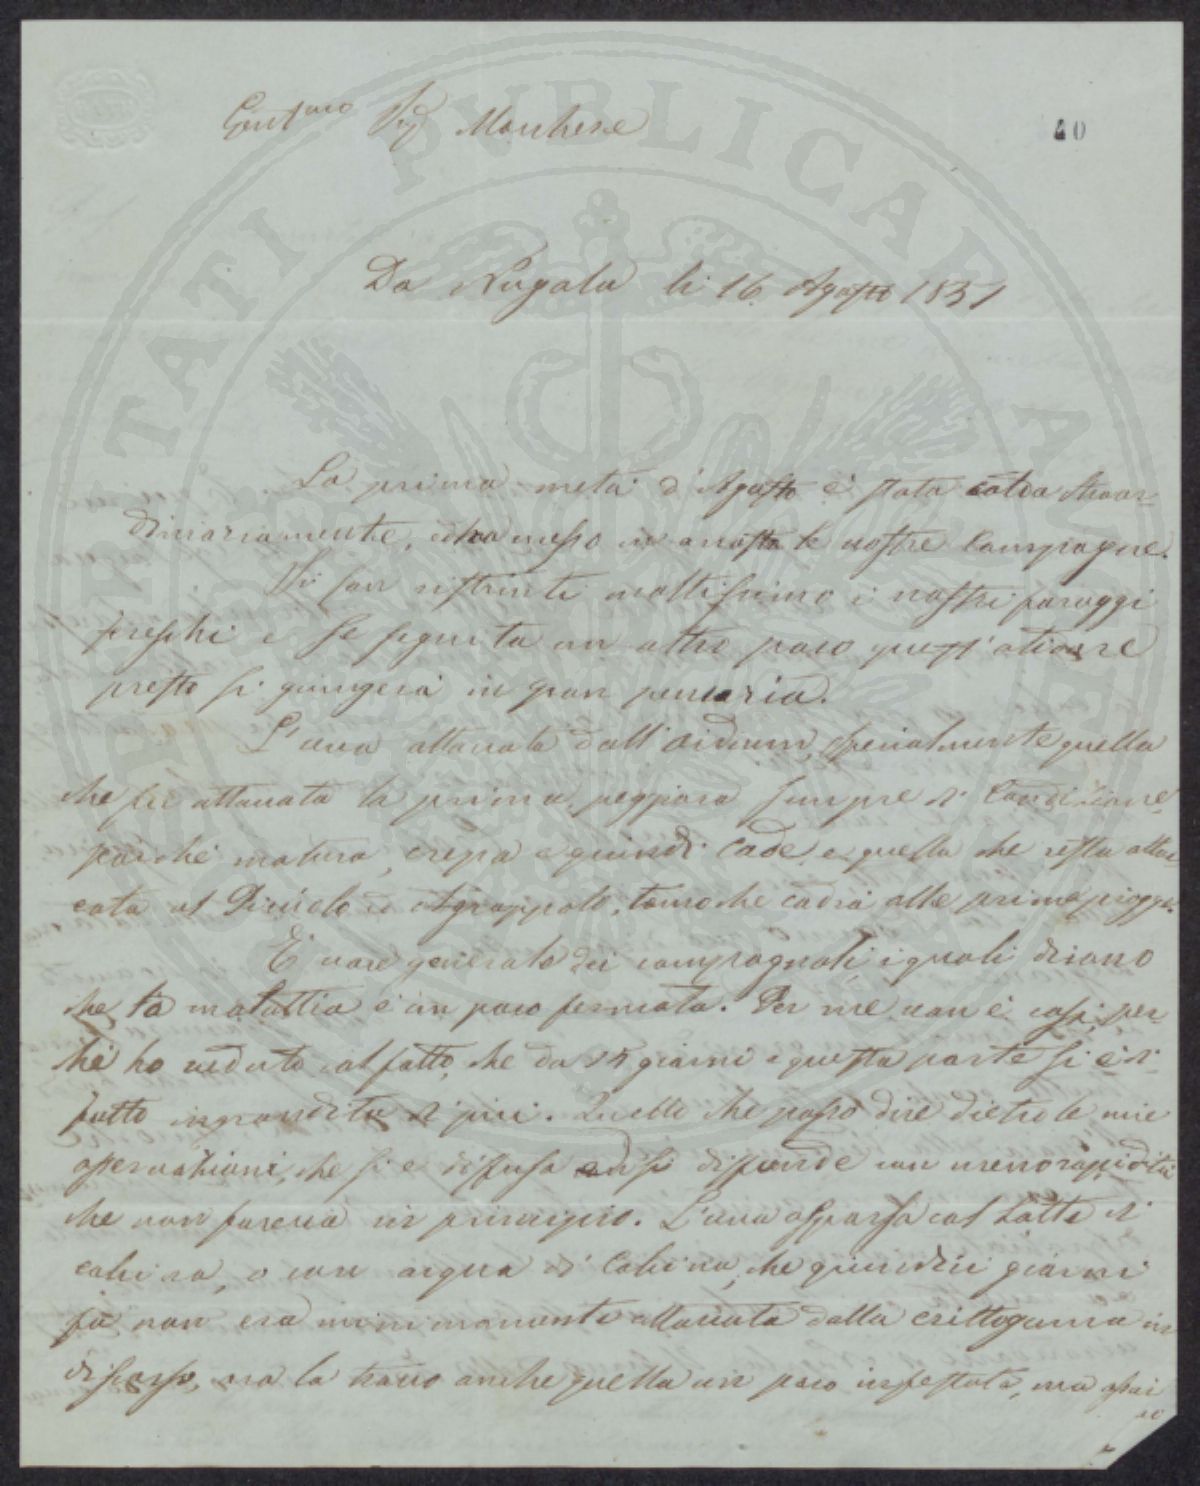 Gent.mo Sig. Marchese
40
Da Nugola li 16 Agosto 1851
La prima metà d'Agosto è stata calda straor-
dinariamente, ed ha messo in anosta le nostre Campagne.
Si son ristrinti moltissimo i nostri foraggi
freschi e se seguita un altro poco quest'ardore
presto si giungerà in gran penuria.
L'uva attaccata dall'oidium, specialmente quella
che fu attaccata la prima, peggiora sempre di Condizione,
poiché matura, crepa e quindi cade, e quella che resta attac-
cata al Picciolo ed al grappolo, temo che cadrà alle prime piogge.
È voce generale dei campagnoli, i quali dicano
che la malattia è un poco fermata. Per me non è così, per-
ché ho veduto col fatto, che da 15 giorni a questa parte si è di
fatto ingrandita di più. Quello che posso dire dietro le mie
osservazioni, che si è diffusa ed si diffonde con meno rapidità
che non faceva in principio. L'uva aspersa col Latte di
calcina, o con acqua di Calcina, che quindici giorni
fa non era minimamente attaccata dalla crittogama in
discorso, ora la trovo anche quella un poco infestata, ma assai